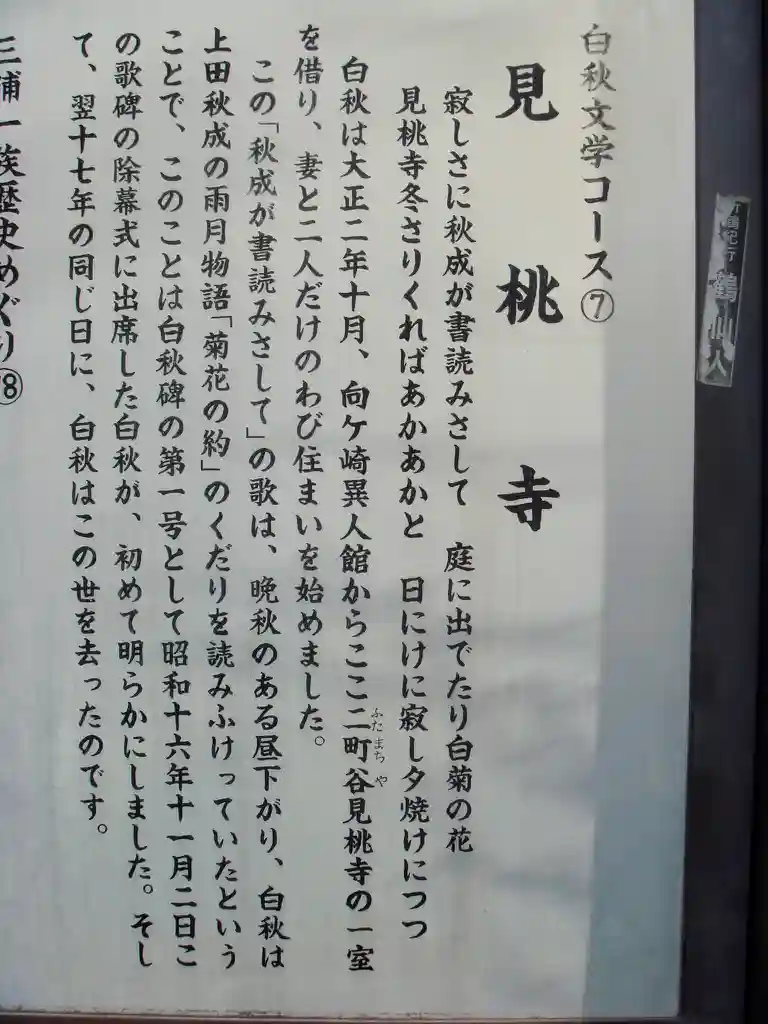 白秋文学コース⑦
見桃寺
寂しさに秋成が書読みさして　庭に出でたり白菊の花
見桃寺冬さりくればあかあかと　日にけに寂し夕焼けにつつ
白秋は大正二年十月、向ケ崎異人館からここ二町谷見桃寺の一室
ふたまちや
を借り、妻と二人だけのわび住まいを始めました。
この「秋成が書読みさして」の歌は、晩秋のある昼下がり、白秋は
上田秋成の雨月物語「菊花の約」のくだりを読みふけっていたという
ことで、このことは白秋碑の第一号として昭和十六年十一月二日こ
の歌碑の除幕式に出席した白秋が、初めて明らかにしました。そし
て、翌十七年の同じ日に、白秋はこの世を去ったのです。
三浦一族歴史めぐり⑱
鶴仙人